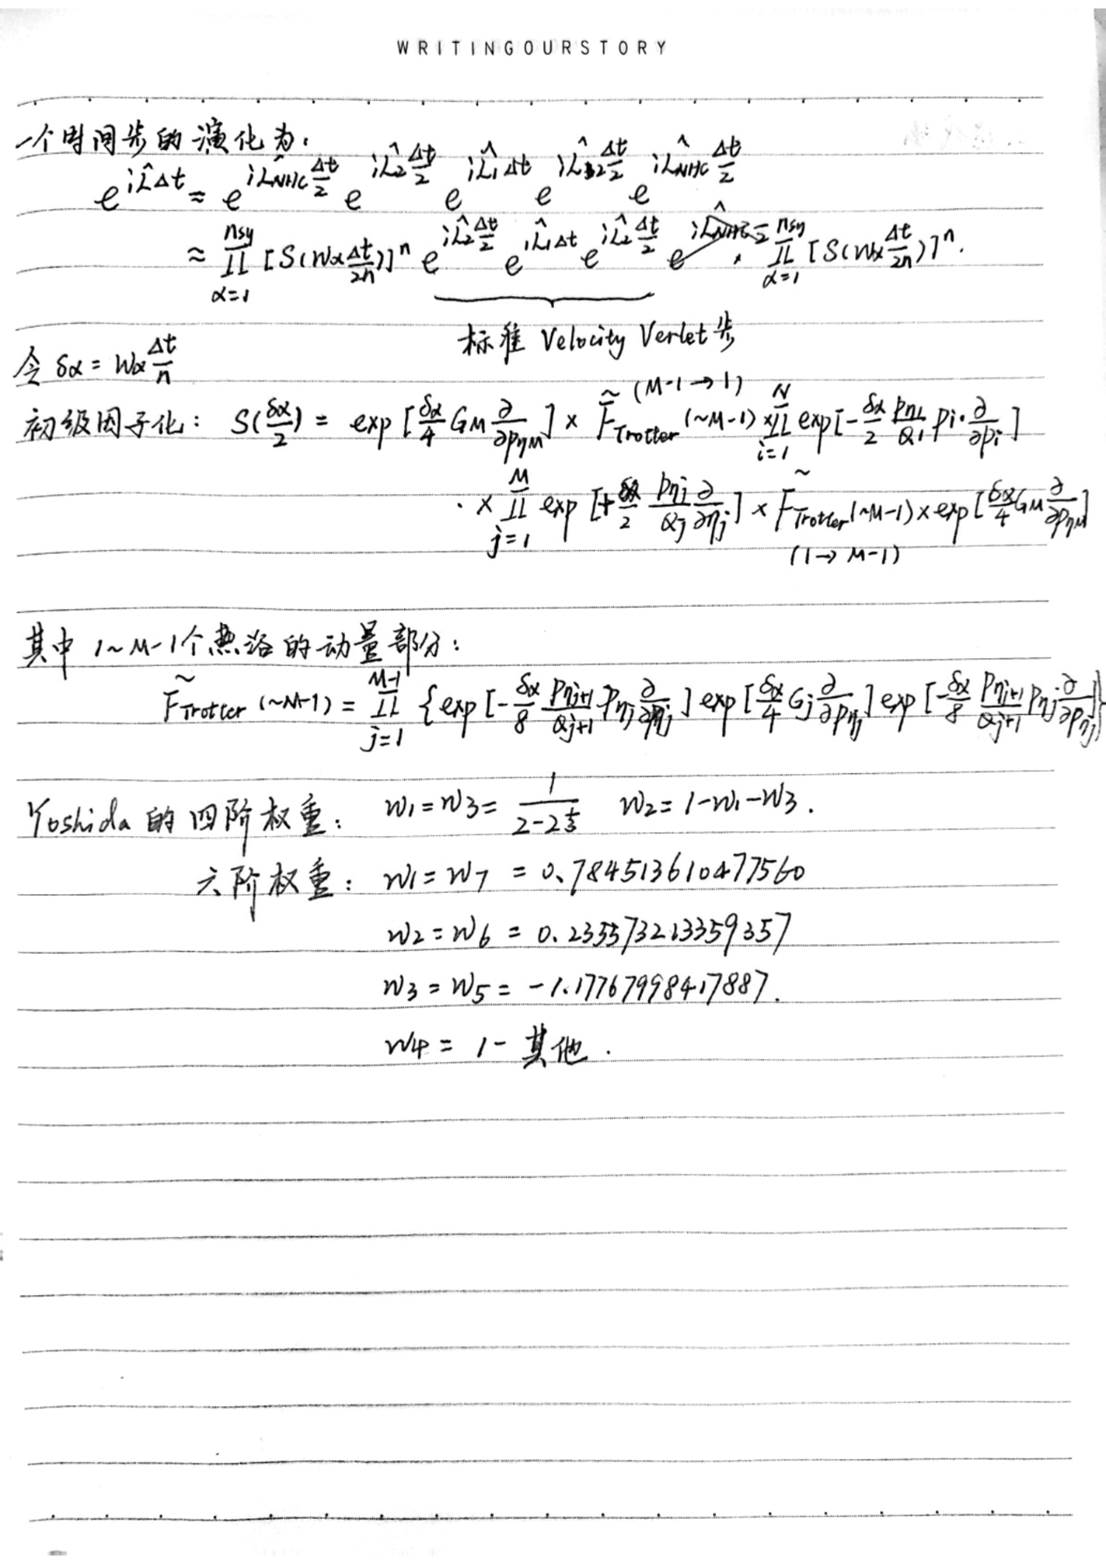 WRITINGOURSTORY
一个时间步的演化为：
e^{iL̂Δt} ≈ e^{iL̂_{NHC} Δt/2} e^{iL̂_2 Δt/2} e^{iL̂_1 Δt} e^{iL̂_2 Δt/2} e^{iL̂_{NHC} Δt/2}
≈ ∏_{α=1}^{n_{sy}} [S(w_α Δt/2n)]^n e^{iL̂_2 Δt/2} e^{iL̂_1 Δt} e^{iL̂_2 Δt/2} · ∏_{α=1}^{n_{sy}} [S(w_α Δt/2n)]^n.
标准 Velocity Verlet 步
令 δα = wα Δt/n
(M-1→1)
初级因子化： S(δα/2) = exp[δα/4 G_M ∂/∂p_{ηM}] × F̃_{Trotter}(1~M-1) × ∏_{i=1}^{N} exp[-δα/2 p_{η1}/Q_1 p_i·∂/∂p_i]
· × ∏_{j=1}^{M} exp[+δα/2 p_{ηj}/Q_j ∂/∂η_j] × F̃_{Trotter}(1~M-1) × exp[δα/4 G_M ∂/∂p_{ηM}]
(1→M-1)
其中 1~M-1个热浴的动量部分：
F̃_{Trotter}(1~M-1) = ∏_{j=1}^{M-1} {exp[-δα/8 p_{ηj+1}/Q_{j+1} p_{ηj} ∂/∂p_{ηj}] exp[δα/4 G_j ∂/∂p_{ηj}] exp[-δα/8 p_{ηj+1}/Q_{j+1} p_{ηj} ∂/∂p_{ηj}]}
Yoshida 的四阶权重： w1 = w3 = 1/(2-2^{1/3}) w2 = 1-w1-w3.
六阶权重： w1 = w7 = 0.784513610477560
w2 = w6 = 0.235573213359357
w3 = w5 = -1.17767998417887.
w4 = 1 - 其他.